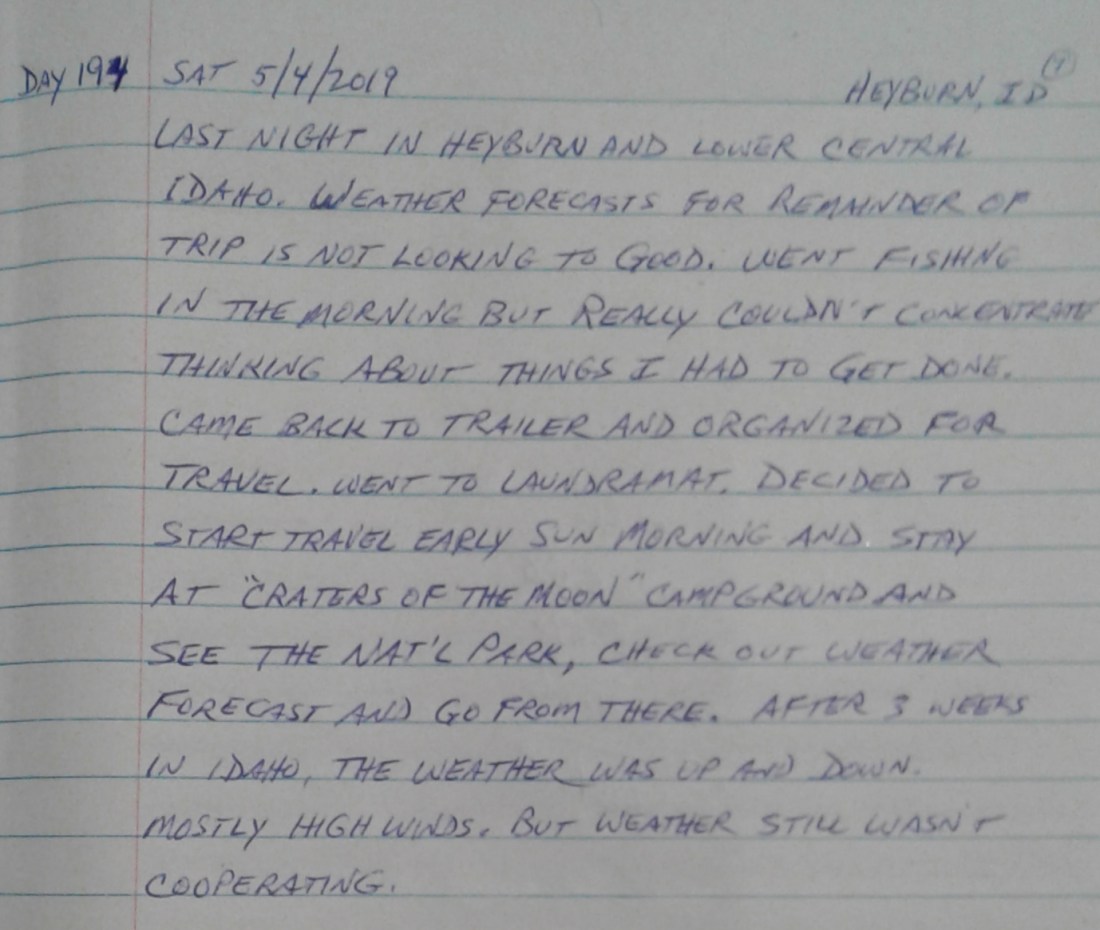 DAY 194 SAT 5/4/2019 HEYBURN, ID
LAST NIGHT IN HEYBURN AND LOWER CENTRAL
IDAHO. WEATHER FORECASTS FOR REMAINDER OF
TRIP IS NOT LOOKING TO GOOD. WENT FISHING
IN THE MORNING BUT REALLY COULDN'T CONCENTRATE
THINKING ABOUT THINGS I HAD TO GET DONE.
CAME BACK TO TRAILER AND ORGANIZED FOR
TRAVEL. WENT TO LAUNDRAMAT. DECIDED TO
START TRAVEL EARLY SUN MORNING AND STAY
AT "CRATERS OF THE MOON" CAMPGROUND AND
SEE THE NAT'L PARK, CHECK OUT WEATHER
FORECAST AND GO FROM THERE. AFTER 3 WEEKS
IN IDAHO, THE WEATHER WAS UP AND DOWN.
MOSTLY HIGH WINDS. BUT WEATHER STILL WASN'T
COOPERATING.